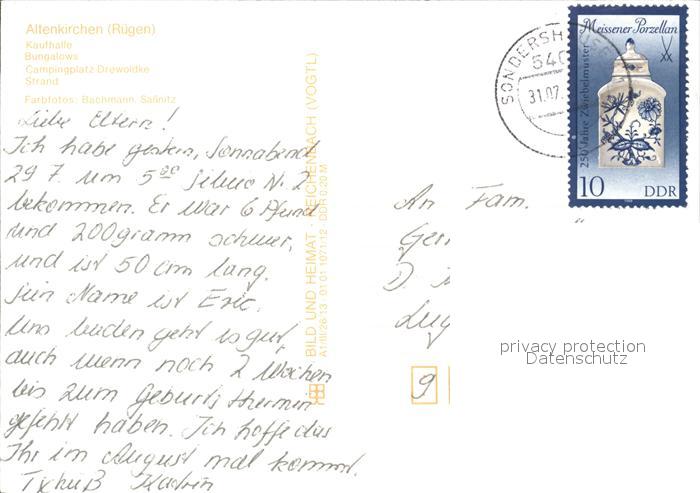 Altenkirchen (Rügen)
Kaufhalle
Bungalows
Campingplatz Drewoldke
Strand
Farbfotos: Bachmann, Saßnitz
Liebe Eltern!
Ich habe gestern, Sonnabend
29 7 um 5⁰⁰ Nr. 2
bekommen. Er war 6 Pfund
und 200gramm schwer,
und ist 50 cm lang.
Sein Name ist Eric.
Uns beiden geht es gut,
auch wenn noch 2 Wochen
bis zum Geburtstthermin
gefehlt haben. Ich hoffe das
Ihr im August mal kommt.
Tschuß Katrin
BILD UND HEIMAT · REICHENBACH (VOGTL)
A1/III/26·13 01 01 1071/12 · DDR 0,20 M
SONDERSH
540
31.07.
Meissener Porzellan
250 Jahre Zwiebelmuster
10 DDR
An Fam.
Ger
D.
Lug
9
privacy protection
Datenschutz